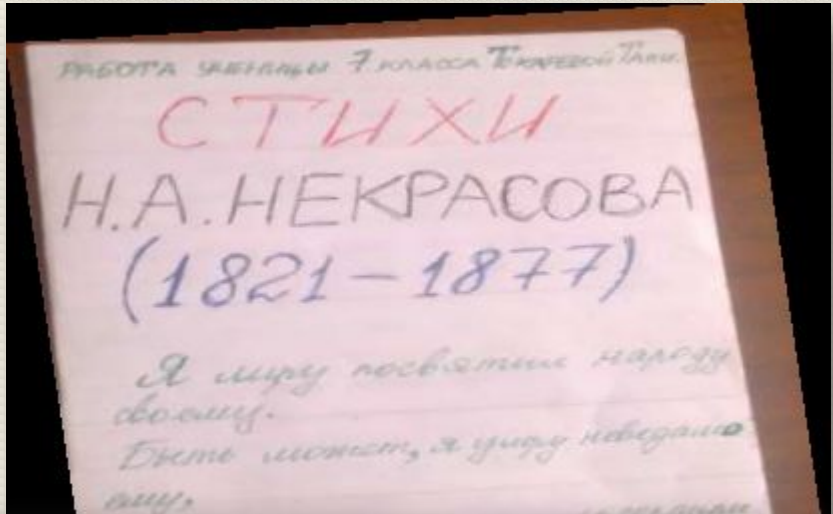 РАБОТА УЧЕНИЦЫ 7 КЛАССА ТОКАРЕВОЙ ТАНИ.
СТИХИ
Н.А.НЕКРАСОВА
(1821–1877)
Я лиру посвятил народу
своему.
Быть может, я умру неведомо
ему,